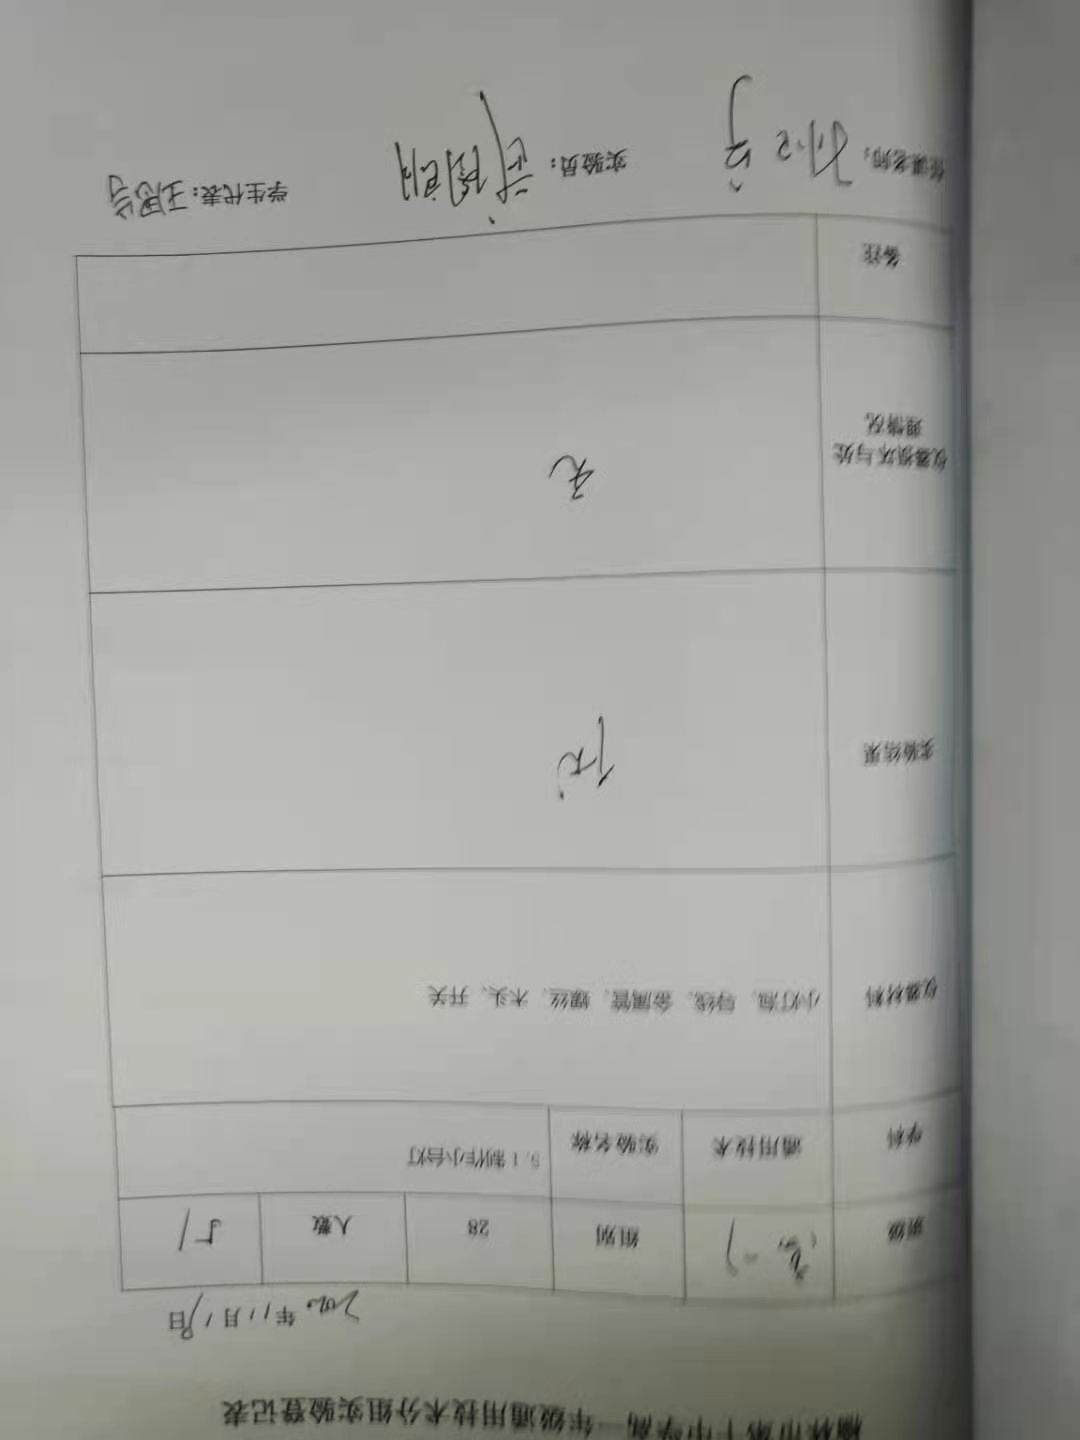 榆林市第十中学高一年级通用技术分组实验登记表
2020年11月18日
班级 组别 28 人数 51
学科 通用技术 实验名称 9.1制作小台灯
仪器材料 小灯泡、导线、金属管、螺丝、木头、开关
实验结果 优
仪器损坏与处
理情况 无
备注
任课老师: 实验员: 学生代表:王